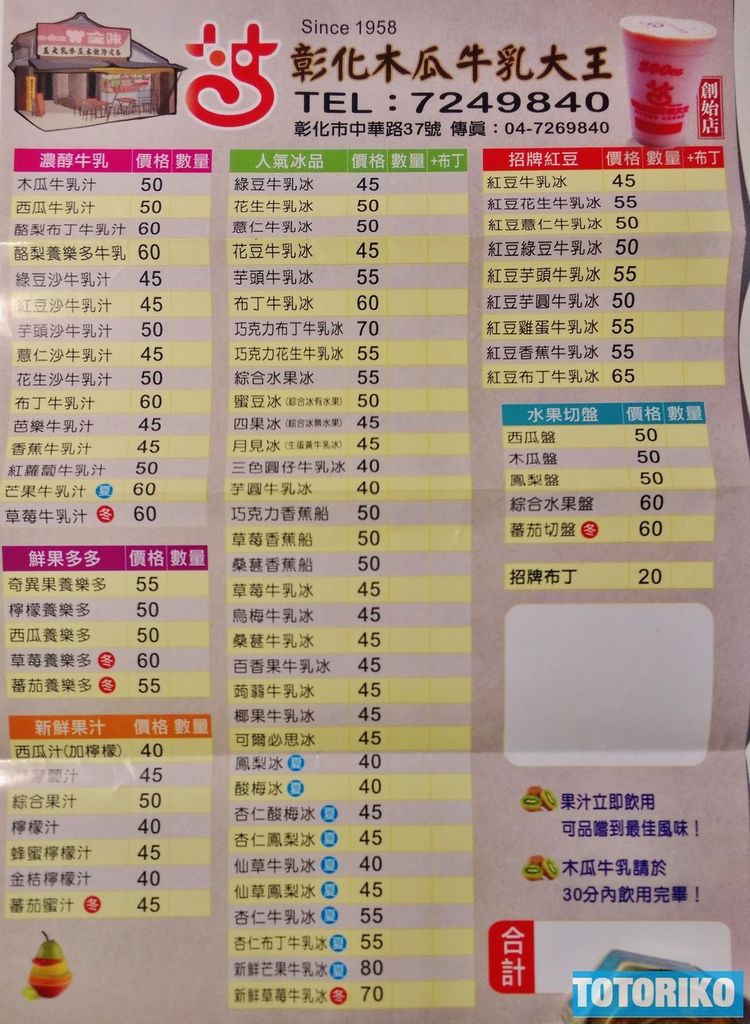 Since 1958
彰化木瓜牛乳大王
TEL：7249840
彰化市中華路37號 傳真：04-7269840
創始店
500cc
濃醇牛乳 價格 數量
木瓜牛乳汁 50
西瓜牛乳汁 50
酪梨布丁牛乳汁 60
酪梨養樂多牛乳 60
綠豆沙牛乳汁 45
紅豆沙牛乳汁 45
芋頭沙牛乳汁 50
薏仁沙牛乳汁 45
花生沙牛乳汁 50
布丁牛乳汁 60
芭樂牛乳汁 45
香蕉牛乳汁 45
紅蘿蔔牛乳汁 50
芒果牛乳汁 夏 60
草莓牛乳汁 冬 60
鮮果多多 價格 數量
奇異果養樂多 55
檸檬養樂多 50
西瓜養樂多 50
草莓養樂多 冬 60
蕃茄養樂多 冬 55
新鮮果汁 價格 數量
西瓜汁(加檸檬) 40
蘿蔔汁 45
綜合果汁 50
檸檬汁 40
蜂蜜檸檬汁 45
金桔檸檬汁 40
蕃茄蜜汁 冬 45
人氣冰品 價格 數量 +布丁
綠豆牛乳冰 45
花生牛乳冰 50
薏仁牛乳冰 50
花豆牛乳冰 45
芋頭牛乳冰 55
布丁牛乳冰 60
巧克力布丁牛乳冰 70
巧克力花生牛乳冰 55
綜合水果冰 55
蜜豆冰(綜合冰有水果) 50
四果冰(綜合冰無水果) 45
月見冰(生蛋黃牛乳冰) 45
三色圓仔牛乳冰 40
芋圓牛乳冰 40
巧克力香蕉船 50
草莓香蕉船 50
桑葚香蕉船 50
草莓牛乳冰 45
烏梅牛乳冰 45
桑葚牛乳冰 45
百香果牛乳冰 45
蒟蒻牛乳冰 45
椰果牛乳冰 45
可爾必思冰 45
鳳梨冰 夏 40
酸梅冰 夏 40
杏仁酸梅冰 夏 45
杏仁鳳梨冰 夏 45
仙草牛乳冰 夏 40
仙草鳳梨冰 夏 45
杏仁牛乳冰 夏 55
杏仁布丁牛乳冰 夏 55
新鮮芒果牛乳冰 夏 80
新鮮草莓牛乳冰 冬 70
招牌紅豆 價格 數量 +布丁
紅豆牛乳冰 45
紅豆花生牛乳冰 55
紅豆薏仁牛乳冰 50
紅豆綠豆牛乳冰 50
紅豆芋頭牛乳冰 55
紅豆芋圓牛乳冰 50
紅豆雞蛋牛乳冰 55
紅豆香蕉牛乳冰 55
紅豆布丁牛乳冰 65
水果切盤 價格 數量
西瓜盤 50
木瓜盤 50
鳳梨盤 50
綜合水果盤 60
蕃茄切盤 冬 60
招牌布丁 20
果汁立即飲用
可品嚐到最佳風味！
木瓜牛乳請於
30分內飲用完畢！
合計
TOTORIKO